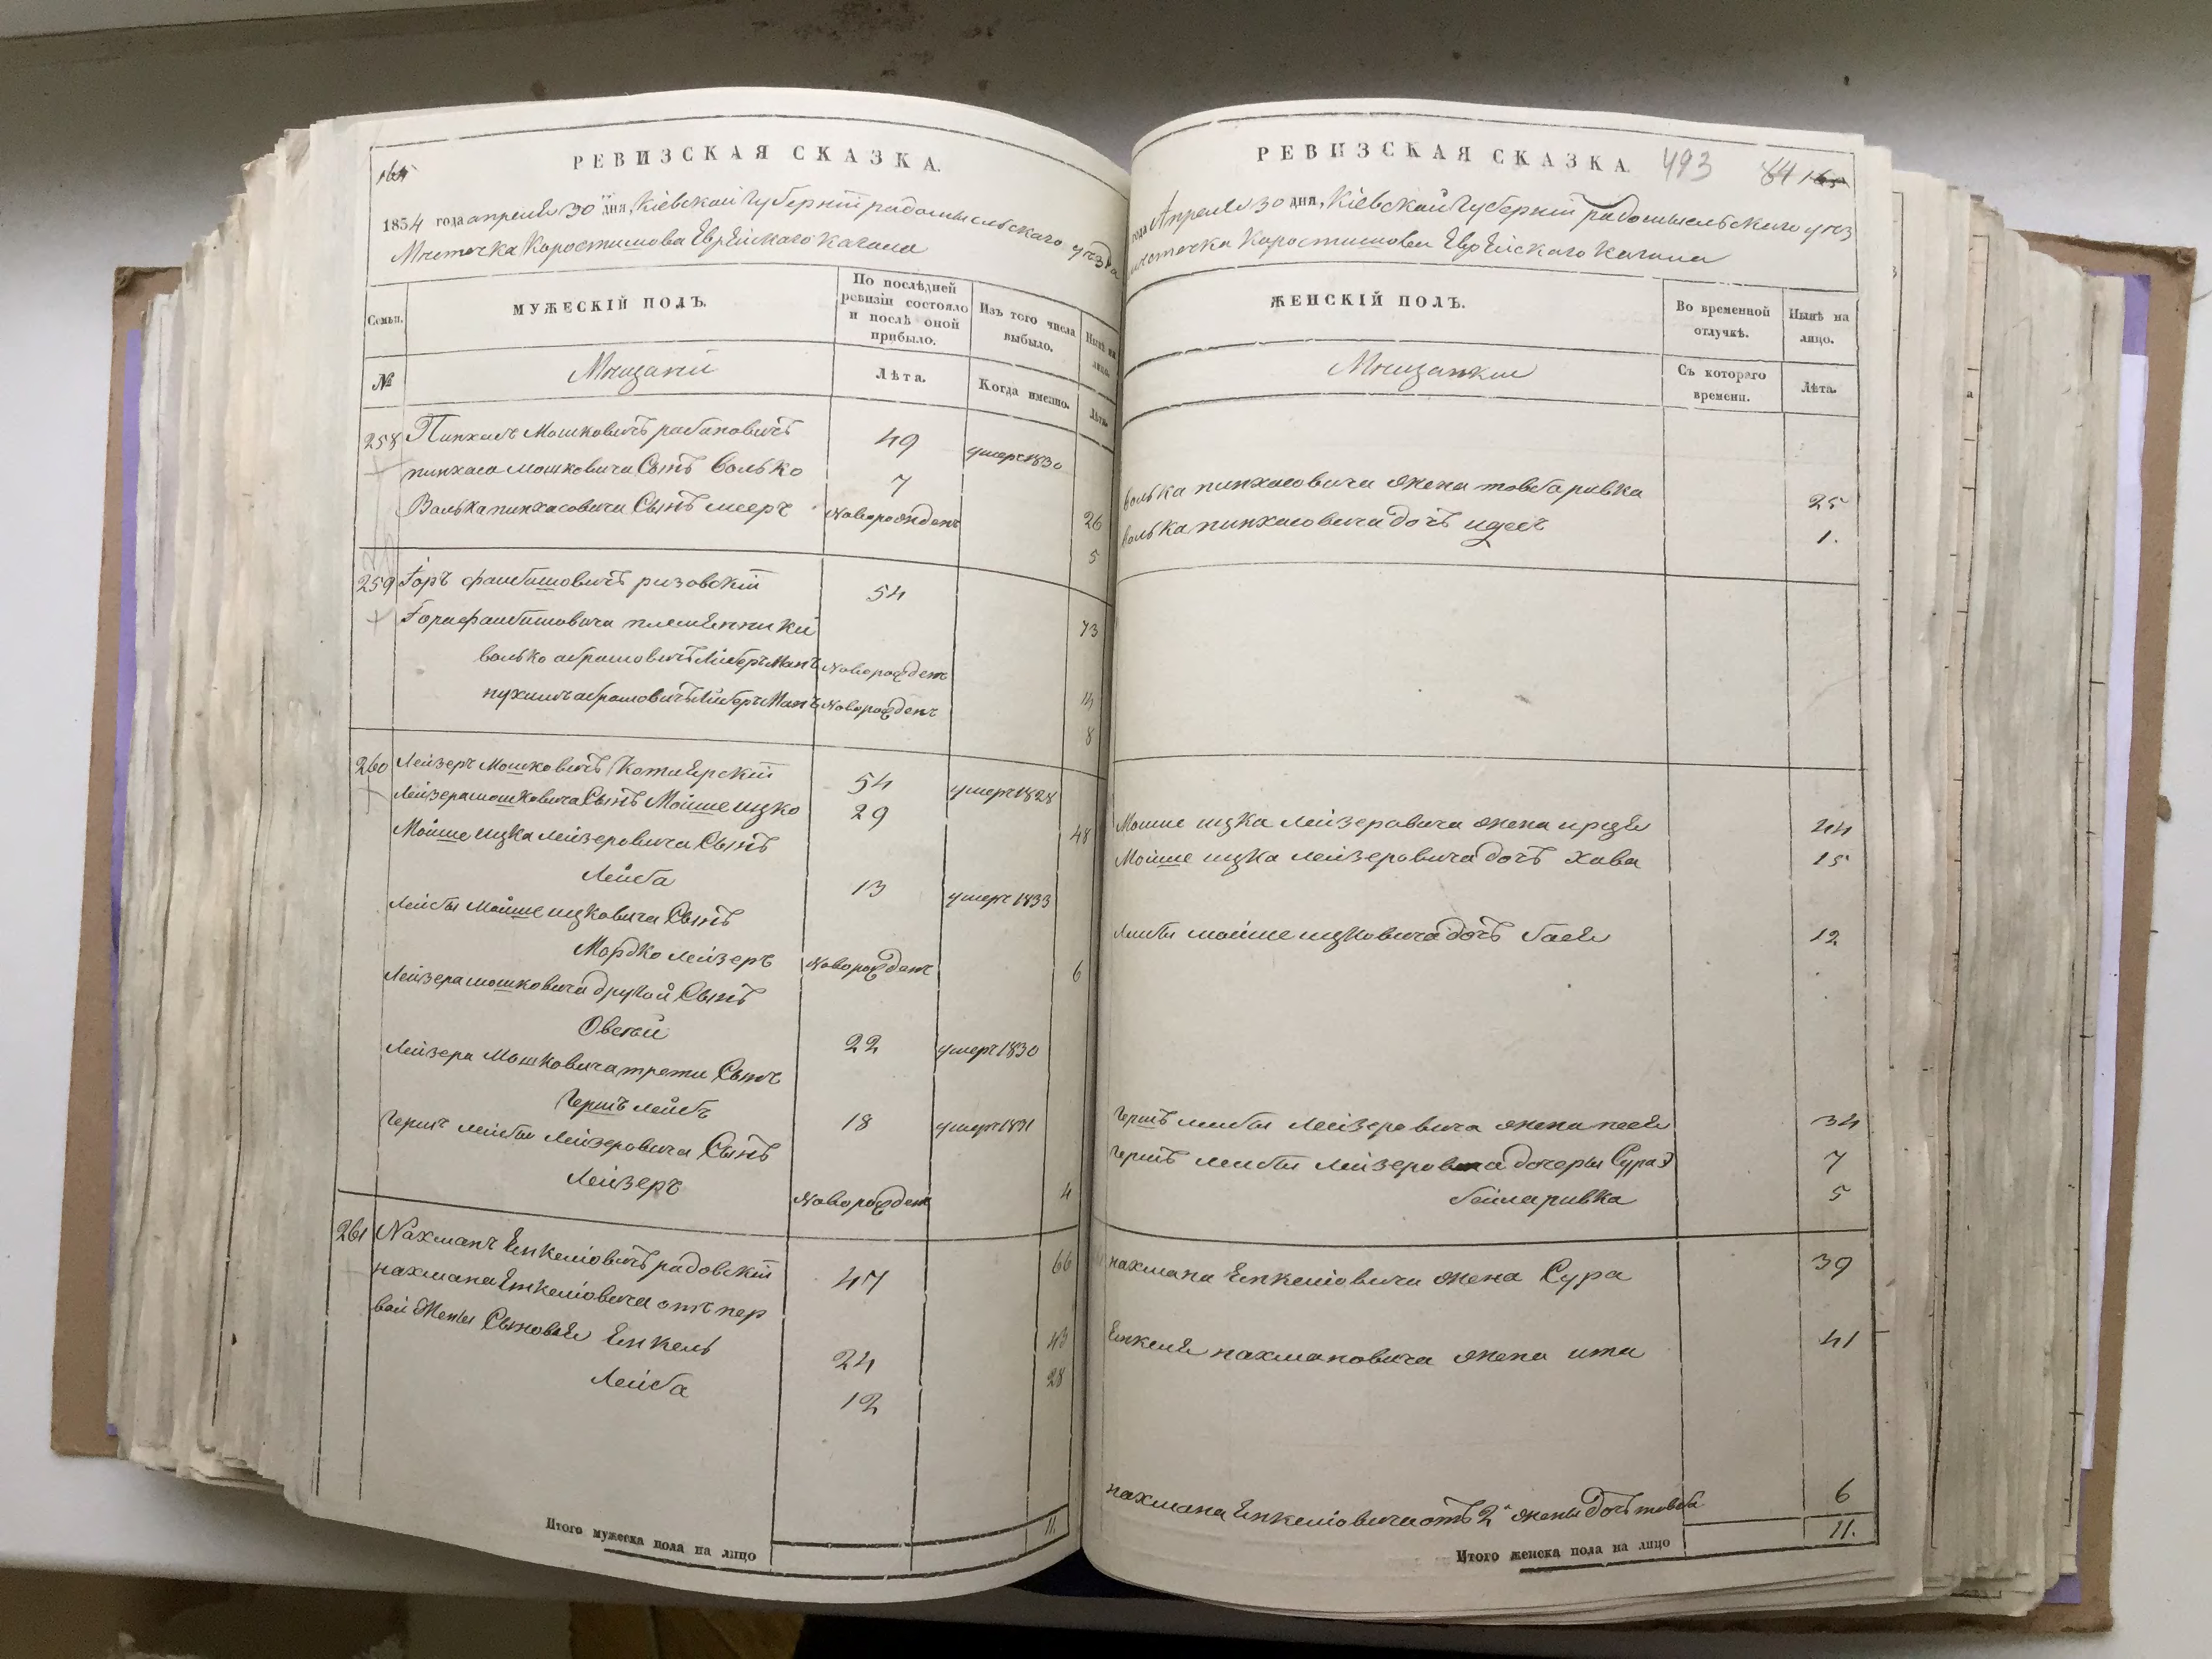 164
РЕВИЗСКАЯ СКАЗКА.
1834 года апреля 30 дня, Кіевской Губерніи радомысльского уѣзда
Мѣстечка Коростишова Еврейского Кагала
Семьи.
МУЖЕСКІЙ ПОЛЪ.
По послѣдней ревизіи состояло и послѣ оной прибыло.
Изъ того числа выбыло.
Нынѣ на лицо.
№
Мѣщаніи
Лѣта.
Когда именно.
Лѣта.
258 Пинхасъ Мошковичъ рабиновичъ 49 умеръ 1830
пинхаса мошковича Сынъ Волько 7 26
Волька пинхасовича Сынъ мееръ Новорожденъ 5
259 Горъ фаибишовичъ ризовскій 54 73
Гора фаибишовича племѣнники
волько абрамовичъ Либерманъ Новорожденъ 14
нухимъ абрамовичъ Либерманъ Новорожденъ 8
260 Лейзеръ Мошковичъ 54 умеръ 1828
Лейзера мошковича Сынъ Мойше ицко 29 48
Мойше ицка лейзеровича Сынъ
Лейба 13 умеръ 1833
Лейбы Мойше ицковича Сынъ
Мордко лейзеръ Новорожденъ 6
Лейзера мошковича другой Сынъ
Овсѣй 22 умеръ 1830
Лейзера Мошковича трети Сынъ
Гершъ лейбъ 18 умеръ 1831
Гершъ лейбы лейзеровича Сынъ
Лейзеръ Новорожденъ 4
261 Нахманъ Енкеліовичъ радовскій 47 66
нахмана Енкеліовича отъ пер
вой Жены Сыновей Енкель 24 43
Лейба 12 28
Итого мужеска пола на лицо 11.
РЕВИЗСКАЯ СКАЗКА. 493 84 165
года Апреля 30 дня, Кіевской Губерніи радомысльского уѣз
мѣстечка Коростишова Еврейского Кагала
ЖЕНСКІЙ ПОЛЪ.
Во временной отлучкѣ.
Нынѣ на лицо.
Мѣщанки
Съ котораго времени.
Лѣта.
Волька пинхасовича жена товба ривка 25
волька пинхасовича дочь идес 1.
Мошие ицка лейзеровича жена 44
Мойше ицка лейзеровича дочь хава 15
Лейбы мойше ицковича дочь басѣ 12
Гершъ лейбы лейзеровича жена песѣ 34
Гершъ лейбы лейзеровича дочеры Сура 7
бейла ривка 5
нахмана Енкеліовича жена Сура 39
Енкеля нахмановича жена ита 41
нахмана Енкеліовича отъ 2й жены дочь товба 6
Итого женска пола на лицо 11.